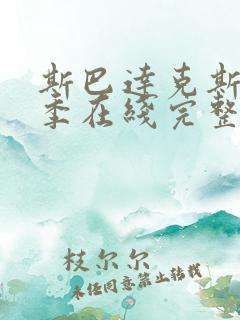 斯巴达克斯
季在线完整
枝尔尔
未经同意禁止转载